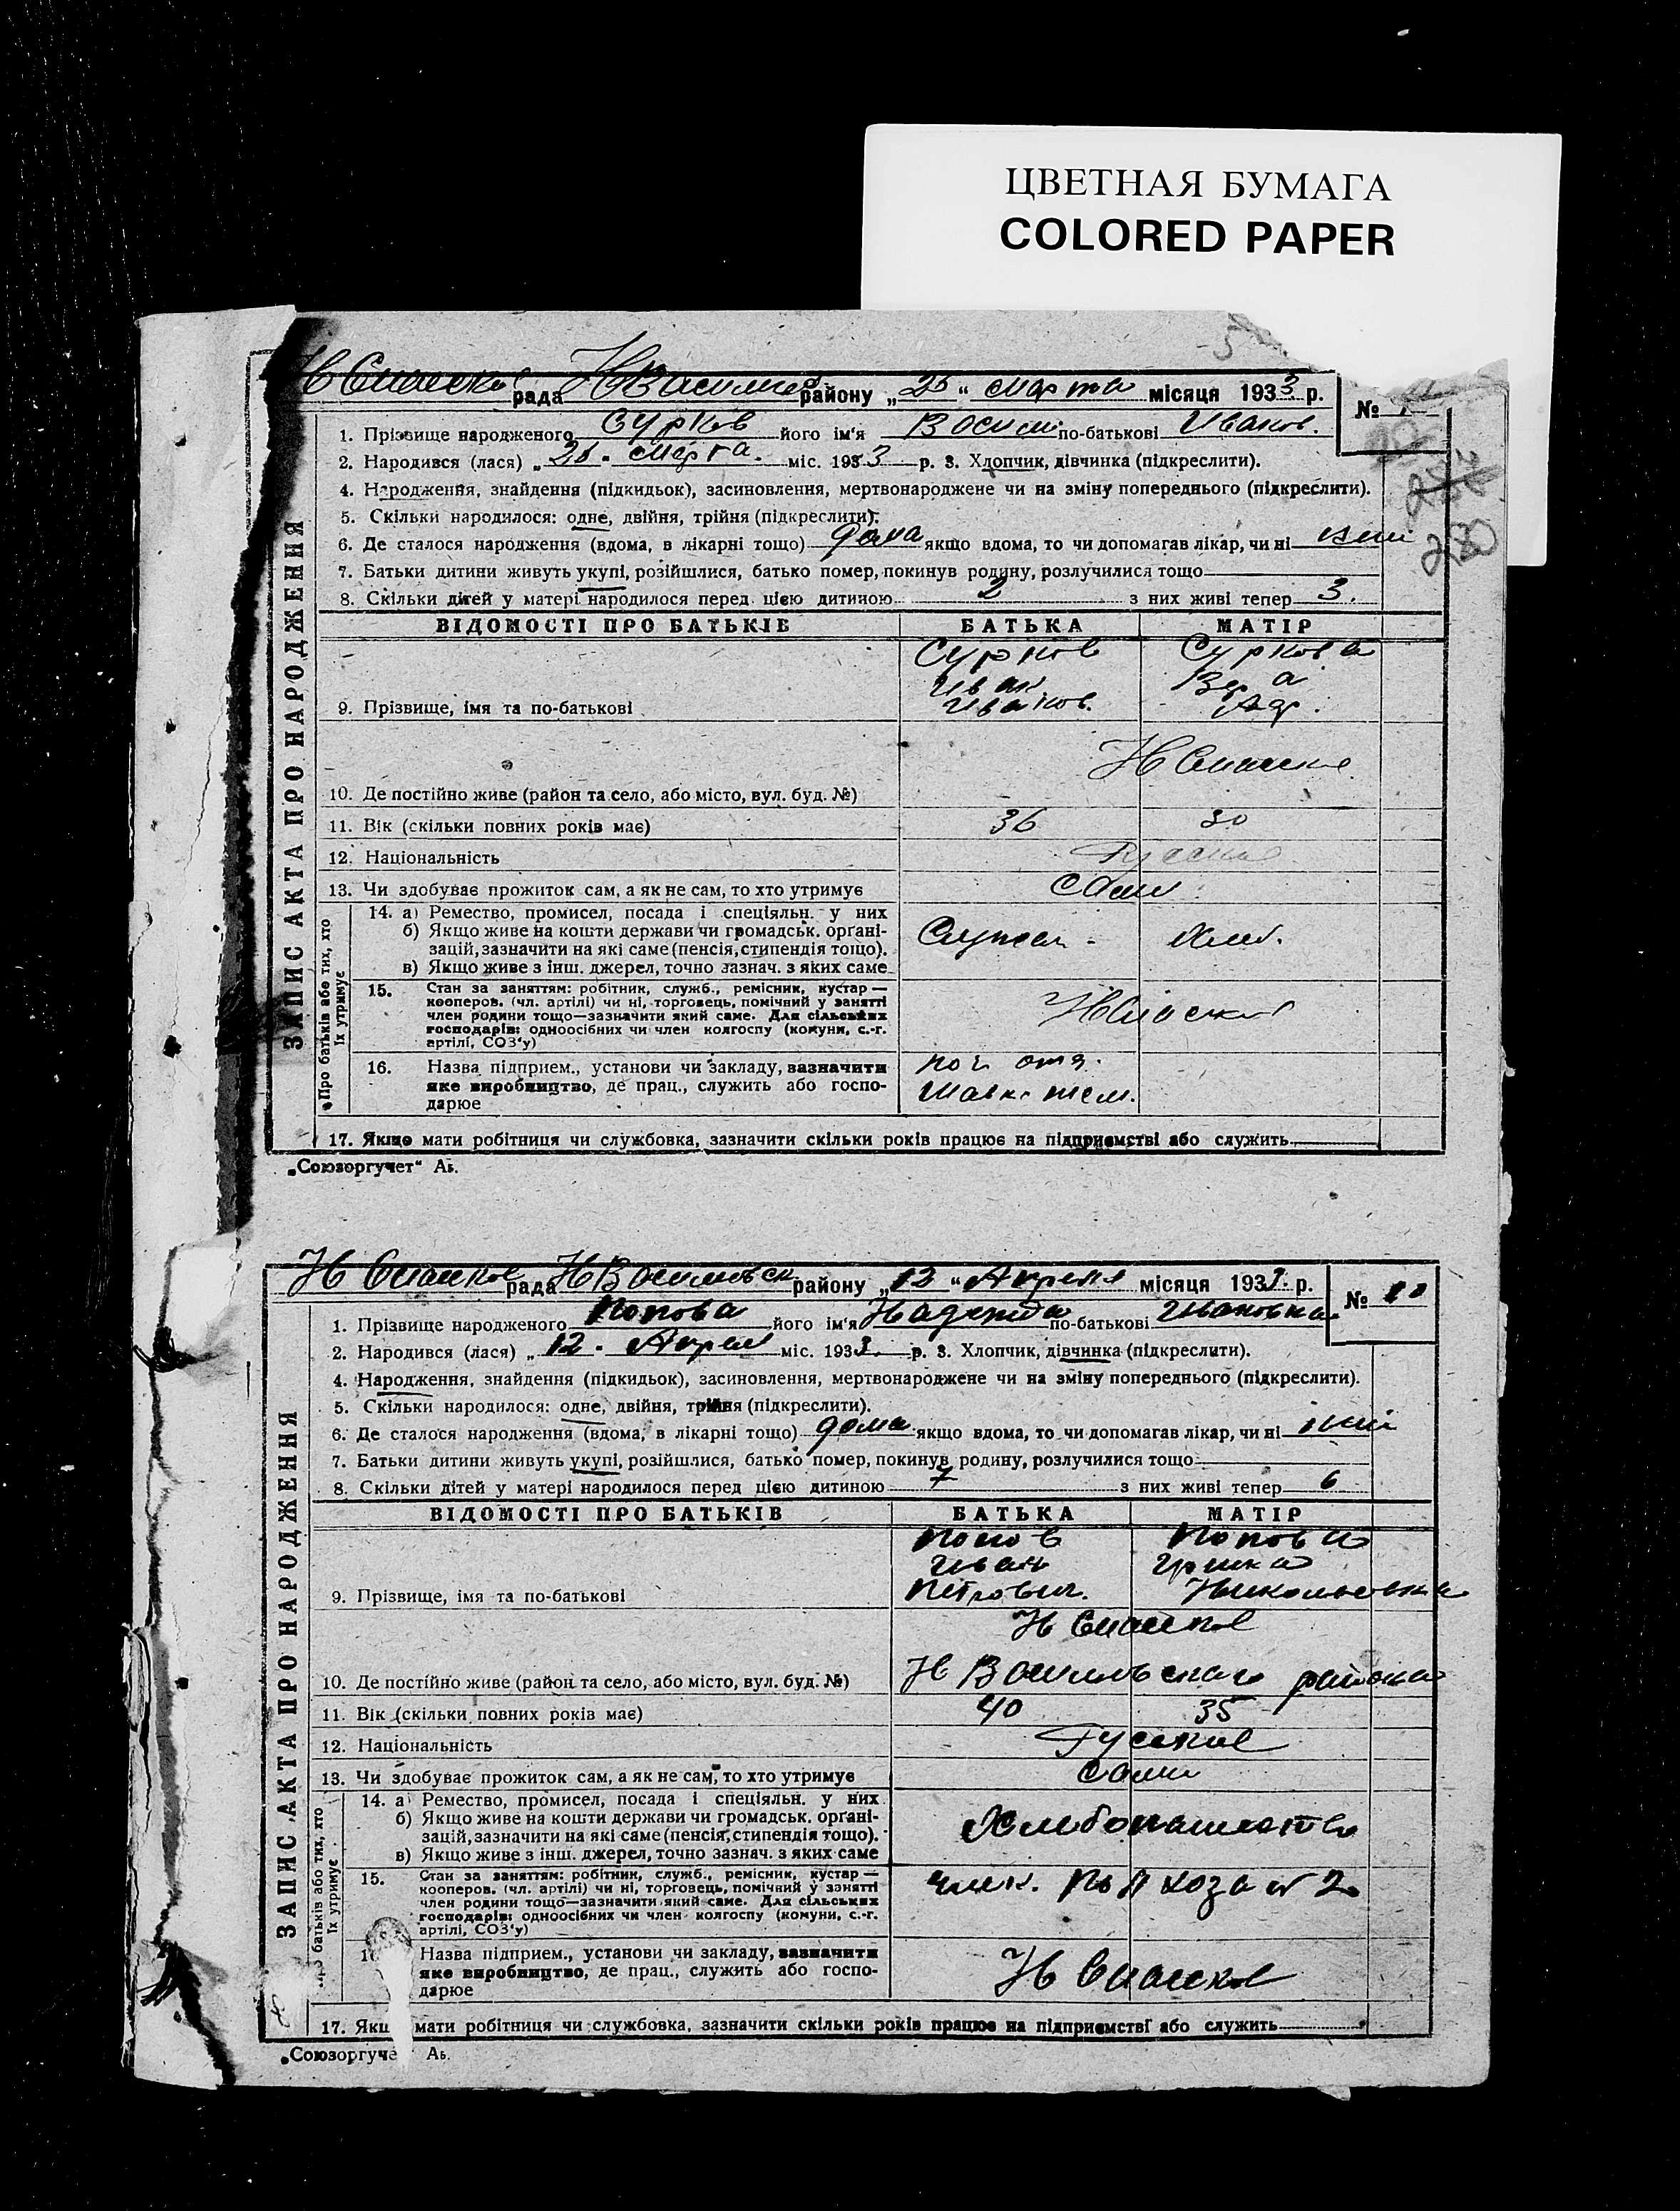 ЦВЕТНАЯ БУМАГА
COLORED PAPER
Н Спаское рада Н Василь району „25“ марта місяця 1933 р. №
1. Прізвище народженого Сурков його ім'я по-батькові Иванов.
2. Народився (лася) „25. марта. міс. 1933 р. 3. Хлопчик, дівчинка (підкреслити).
4. Народження, знайдення (підкидьок), засиновлення, мертвонароджене чи на зміну попереднього (підкреслити).
5. Скільки народилося: одне, двійня, трійня (підкреслити).
6. Де сталося народження (вдома, в лікарні тощо) дома якщо вдома, то чи допомагав лікар, чи ні
7. Батьки дитини живуть укупі, розійшлися, батько помер, покинув родину, розлучилися тощо
8. Скільки дітей у матері народилося перед цією дитиною 2 з них живі тепер 3.
230
ЗАПИС АКТА ПРО НАРОДЖЕННЯ
ВІДОМОСТІ ПРО БАТЬКІВ БАТЬКА МАТІР
Сурков Суркова
Иван Вера
9. Прізвище, імя та по-батькові Иванов.
Н Спаское
10. Де постійно живе (район та село, або місто, вул. буд. №)
11. Вік (скільки повних років має) 36 30
12. Національність Русские
13. Чи здобуває прожиток сам, а як не сам, то хто утримує сами
Про батьків або тих, хто їх утримує
14. а) Ремество, промисел, посада і спеціяльн. у них
б) Якщо живе на кошти держави чи громадськ. органі-
зацій, зазначити на які саме (пенсія, стипендія тощо). Служащ. Хлеб.
в) Якщо живе з інш. джерел, точно зазнач. з яких саме
15. Стан за заняттям: робітник, служб., ремісник, кустар—
кооперов. (чл. артілі) чи ні, торговець, помічний у занятті
член родини тощо—зазначити який саме. Для сільських
господарів: одноосібних чи член колгоспу (комуни, с.-г.
артілі, СОЗ'у)
16. Назва підприєм., установи чи закладу, зазначити
яке виробництво, де прац., служить або госпо-
дарює
17. Якщо мати робітниця чи службовка, зазначити скільки років працює на підприємстві або служить
„Союзоргучет“ Аь.
Н Спаское рада Н Васильевск району „12“ Апреля місяця 1933 р. № 10
1. Прізвище народженого Попова його ім'я Надежда по-батькові Ивановна
2. Народився (лася) „12. Апрел міс. 1933. р. 3. Хлопчик, дівчинка (підкреслити).
4. Народження, знайдення (підкидьок), засиновлення, мертвонароджене чи на зміну попереднього (підкреслити).
5. Скільки народилося: одне, двійня, трійня (підкреслити).
6. Де сталося народження (вдома, в лікарні тощо) дома якщо вдома, то чи допомагав лікар, чи ні
7. Батьки дитини живуть укупі, розійшлися, батько помер, покинув родину, розлучилися тощо
8. Скільки дітей у матері народилося перед цією дитиною 7 з них живі тепер 6
ЗАПИС АКТА ПРО НАРОДЖЕННЯ
ВІДОМОСТІ ПРО БАТЬКІВ БАТЬКА МАТІР
Попов Попова
Иван Ирина
9. Прізвище, імя та по-батькові Петрович. Николаевна
Н Спаское
10. Де постійно живе (район та село, або місто, вул. буд. №) Н Васильевскаго района
11. Вік (скільки повних років має) 40 35
12. Національність Русские
13. Чи здобуває прожиток сам, а як не сам, то хто утримує сами
батьків або тих, хто їх утримує
14. а) Ремество, промисел, посада і спеціяльн. у них
б) Якщо живе на кошти держави чи громадськ. органі-
зацій, зазначити на які саме (пенсія, стипендія тощо). Хлебопашество
в) Якщо живе з інш. джерел, точно зазнач. з яких саме
15. Стан за заняттям: робітник, служб., ремісник, кустар—
кооперов. (чл. артілі) чи ні, торговець, помічний у занятті
член родини тощо—зазначити який саме. Для сільських
господарів: одноосібних чи член колгоспу (комуни, с.-г.
артілі, СОЗ'у)
Назва підприєм., установи чи закладу, зазначити
яке виробництво, де прац., служить або госпо- Н Спаское
дарює
17. Якщ мати робітниця чи службовка, зазначити скільки років працює на підприємстві або служить
„Союзоргуче Аь.